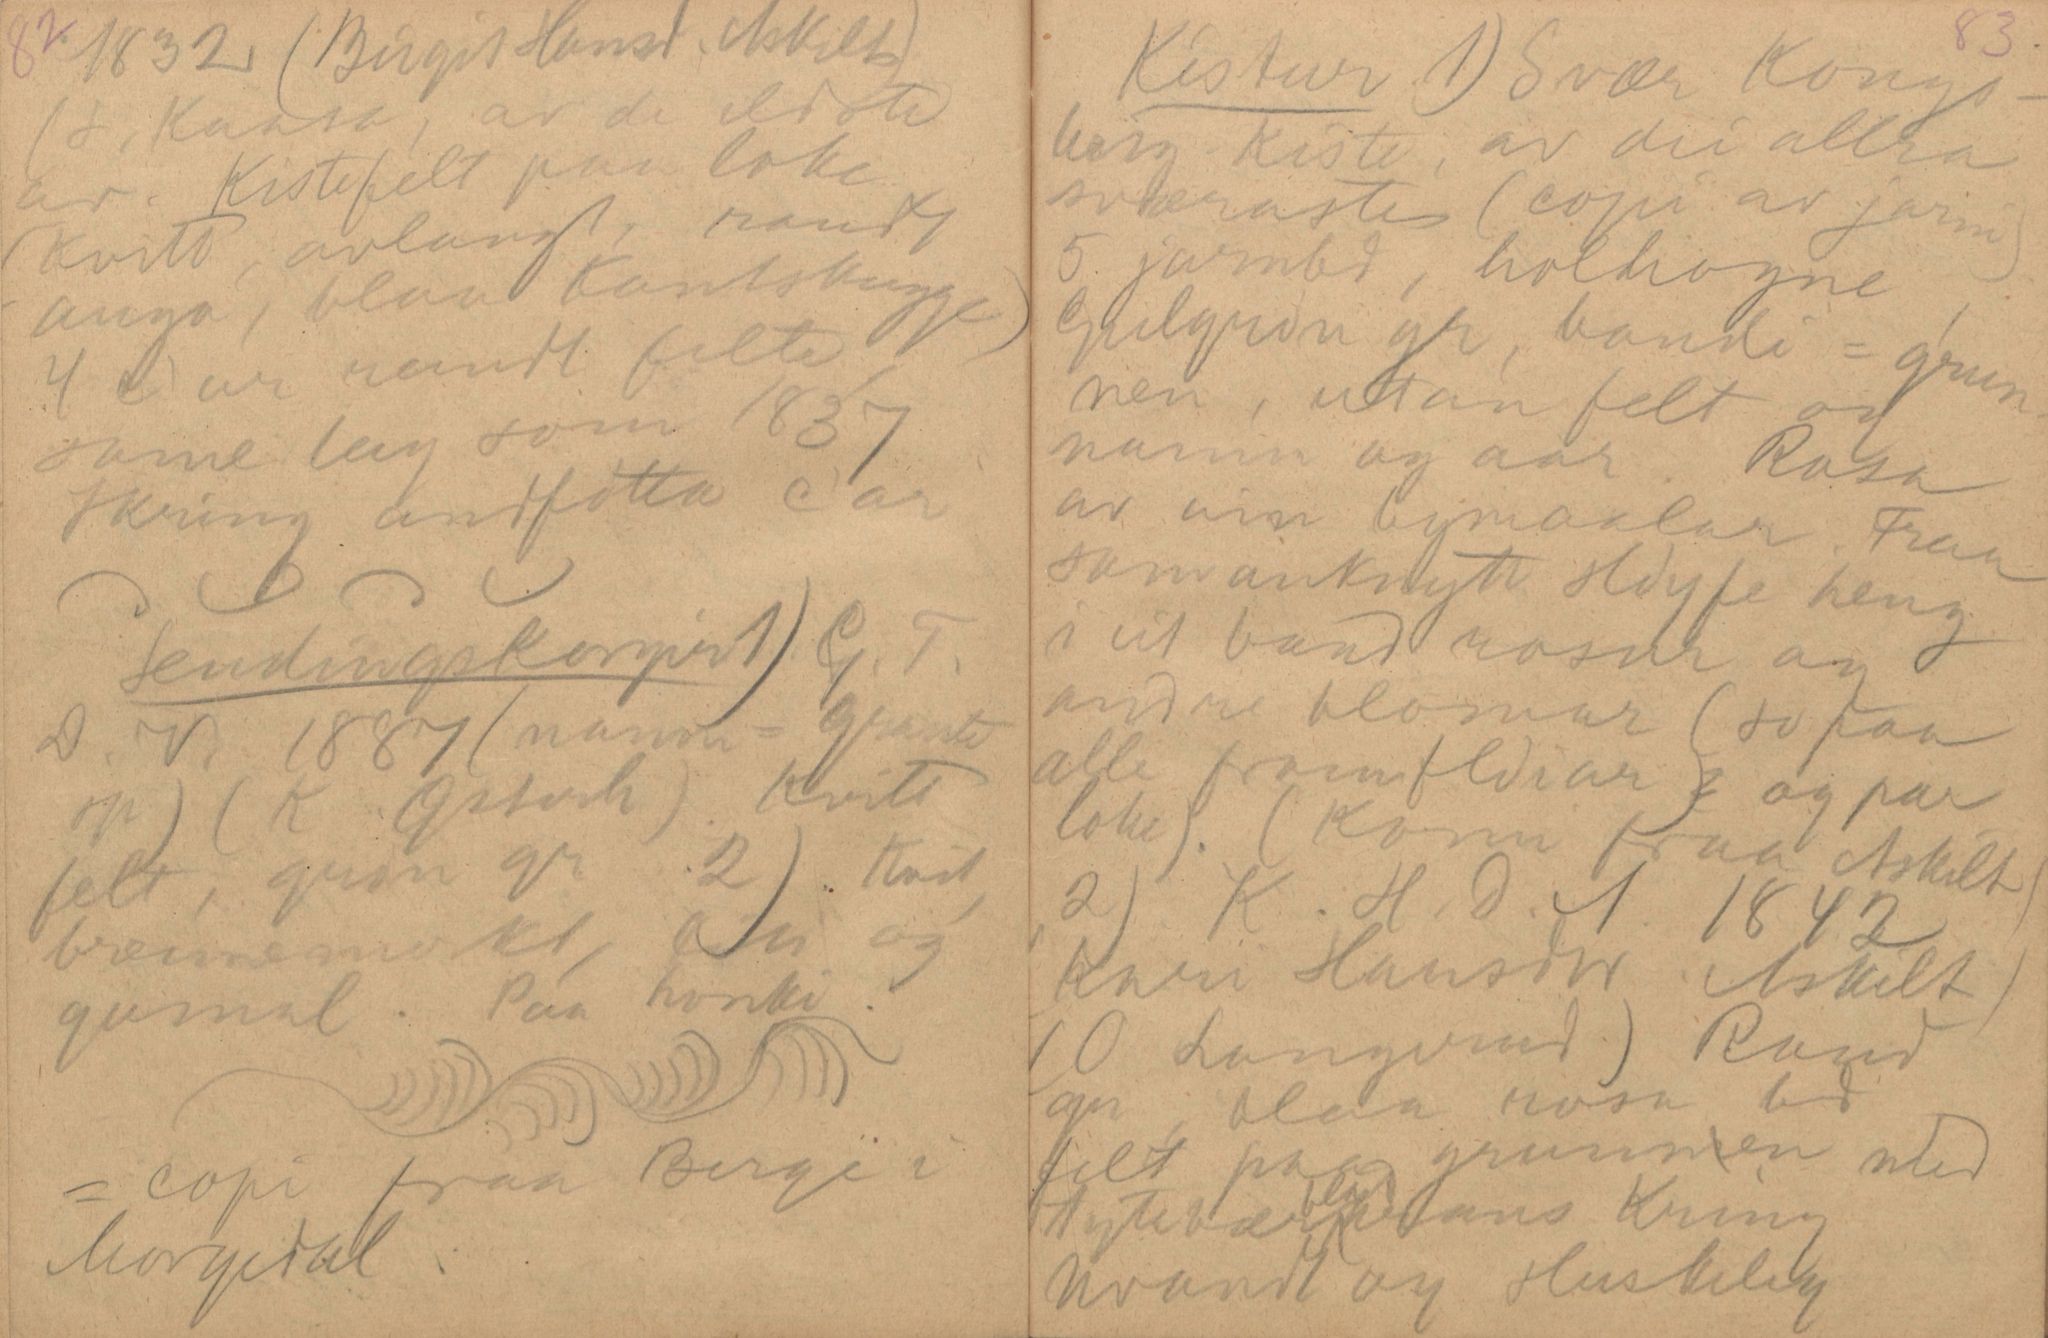 82
1832 (Birgit Hansd. Askilt)
(s, Kaasa, av de eldste
ar. Kistefelt paa loke
(kvitt, avlangt, raudt
auga, blaa kantskugge)
4 C ar rundt felte,
same lag som 1837
kring andføtta C ar
Sendingskorgir 1) G. T.
D. V. 1887 (namn = Grunte
op) (K Gstoih). Kvitt
felt, grøn gr 2) Kvit,
brennemerkt, og
gamal. Paa honki.
= copi fraa Berge i
Morgedal.
83
Kistur 1) Svær Kongs-
berg-Kiste, av dei allra
sværaste (copi av jarni)
5 jarnbd, holhogne,
Gulgrøn gr, bandi = grun-
nen, utan felt og
namn og aar. Rosa
av ein bymaalar. Fraa
samanknytt sløyfe heng
i eit band rosur og
andre blomar (so paa
alle framfldiar) = og paa
loke). (Komi fraa Askilt)
2) K. H. D. A. 1842
Kari Hansdtr Askilt)
(O Langerud) Raud
gr, blaa rosa bd
felt paa grunnen med
Tytebær krans kring
Nvandt og Huskeleg